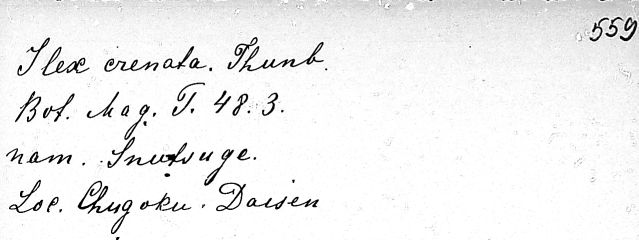 559
Ilex crenata. Thunb.
Bot. Mag. T. 48. 3.
nam. Inutsuge.
Loc. Chugoku. Daisen